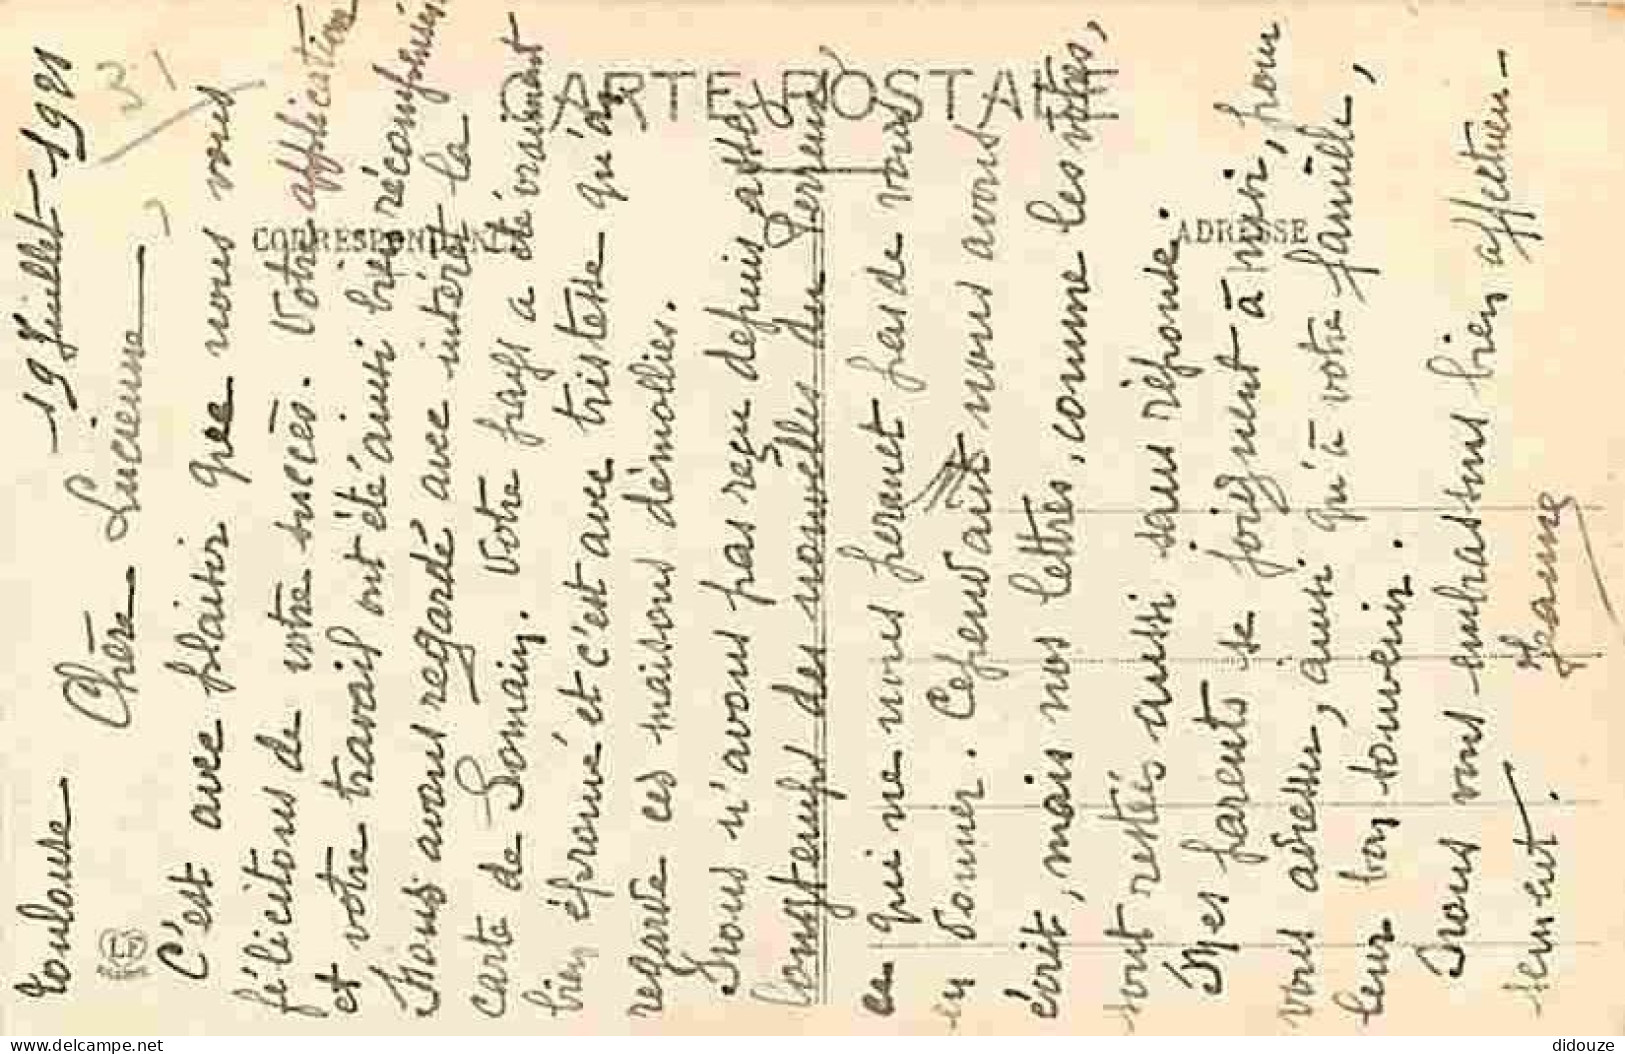 Toulouse 19 Juillet 1921
Chère Lucienne,
C'est avec plaisir que nous vous
félicitons de votre succès. Votre application
et votre travail ont été ainsi bien récompensés
Nous avons regardé avec intérêt la
carte de Somain. Votre pays a été vraiment
bien éprouvé et c'est avec tristesse qu'on
regarde ces maisons démolies.
Nous n'avons pas reçu depuis assez
longtemps des nouvelles du Perreux
ce qui ne nous permet pas de vous
en donner. Cependant nous avons
écrit, mais nos lettres, comme les vôtres,
sont restées aussi sans réponse.
Mes parents se joignent à moi, pour
vous adresser, ainsi qu'à votre famille,
leur bon souvenir.
Nous vous embrassons bien affectueu-
sement.
Jeanne
CARTE POSTALE
CORRESPONDANCE
ADRESSE
LF
delcampe.net
didouze